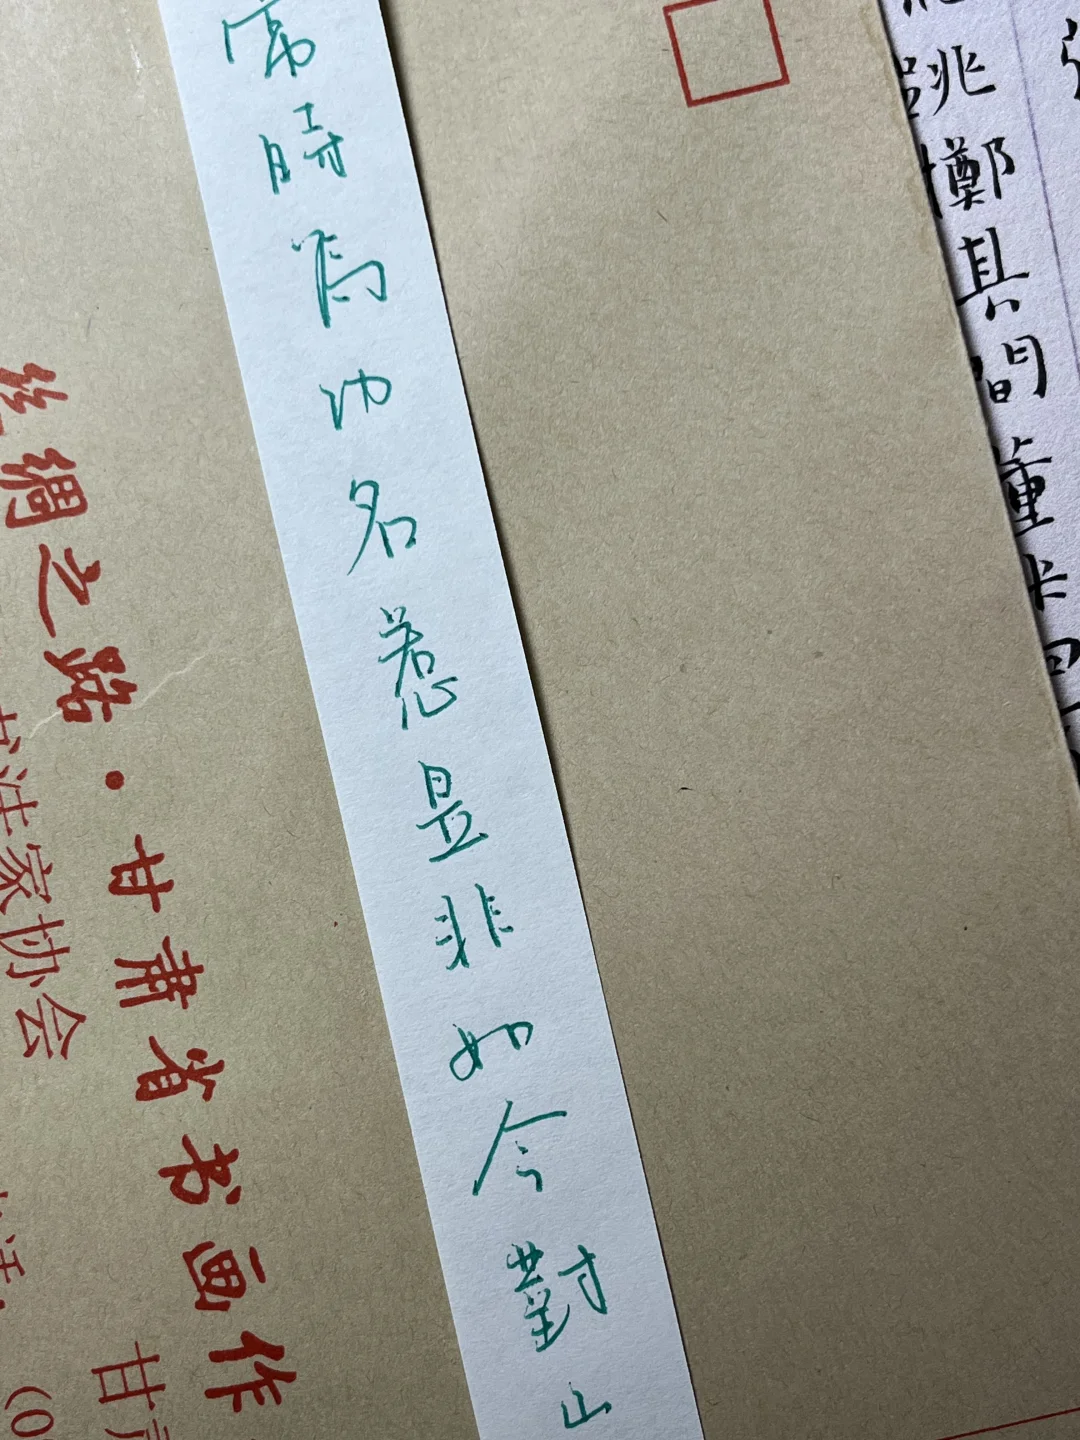 跳鄭其間董
常時為功名惹是非如今對山
丝绸之路·甘肃省书画作
法家协会
甘
(0